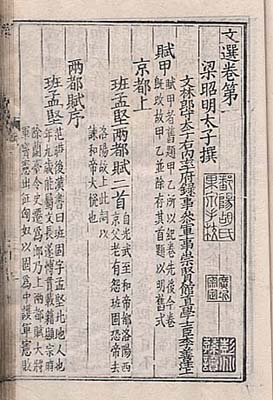 文選卷第一
梁昭明太子撰
文林郎守太子右內率府錄事參軍事崇賢館直學士臣李善注上
賦甲 賦甲者舊題甲乙所以紀卷先後今卷
既改故甲乙並除存其首題以明舊式
京都上
班孟堅兩都賦二首 自光武至和帝都洛陽西
京父老有怨班固恐帝去
洛陽故上此詞以
諫和帝大悅也
兩都賦序
班孟堅 范曄後漢書曰班固字孟堅北地人也
年九歲能屬文長遂博貫載籍顯宗時
除蘭臺令史遷為郎乃上兩都賦大將
軍竇憲出征匈奴以固為中護軍憲敗
鄱陽胡氏
果泉